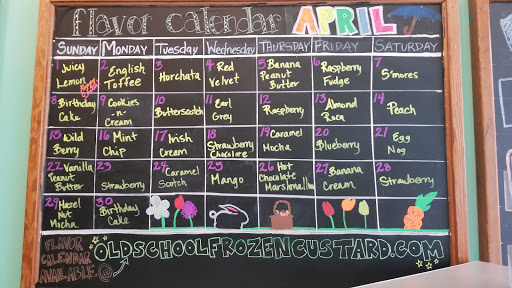 flavor calendar APRIL
SUNDAY MONDAY Tuesday Wednesday THURSDAY FRIDAY SATURDAY
1 Juicy Lemon
2 English Toffee
3 Horchata
4 Red Velvet
5 Banana Peanut Butter
6 Raspberry Fudge
7 S'mores
8 Birthday Cake
9 Cookies -n- Cream
10 Butterscotch
11 Earl Grey
12 Raspberry
13 Almond Roca
14 Peach
15 Wild Berry
16 Mint Chip
17 Irish Cream
18 Strawberry Chocolate
19 Caramel Mocha
20 Blueberry
21 Egg Nog
22 Vanilla Peanut Butter
23 Strawberry
24 Caramel Scotch
25 Mango
26 Hot Chocolate Marshmallow
27 Banana Cream
28 Strawberry
29 Hazel Nut Mocha
30 Birthday Cake
FLAVOR CALENDAR AVAILABLE @
OLDSCHOOLFROZENCUSTARD.COM